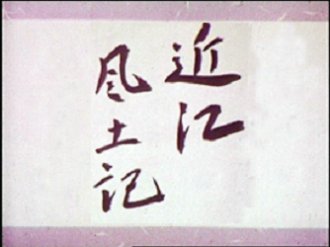 近江
風土記